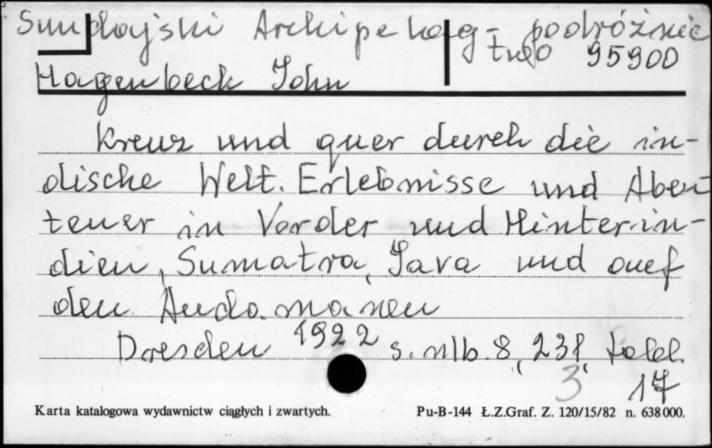 Sundajski Archipelag - podróżnic
two 95900
Hagenbeck John
Kreuz und quer durch die in-
dische Welt. Erlebnisse und Aben-
teuer in Vorder und Hinterin-
dien, Sumatra, Java und auf
den Andamanen
Dresden 1922 s. nlb. 8, 231, tabl.
3 17
Karta katalogowa wydawnictw ciągłych i zwartych. Pu-B-144 Ł.Z.Graf. Z. 120/15/82 n. 638000.